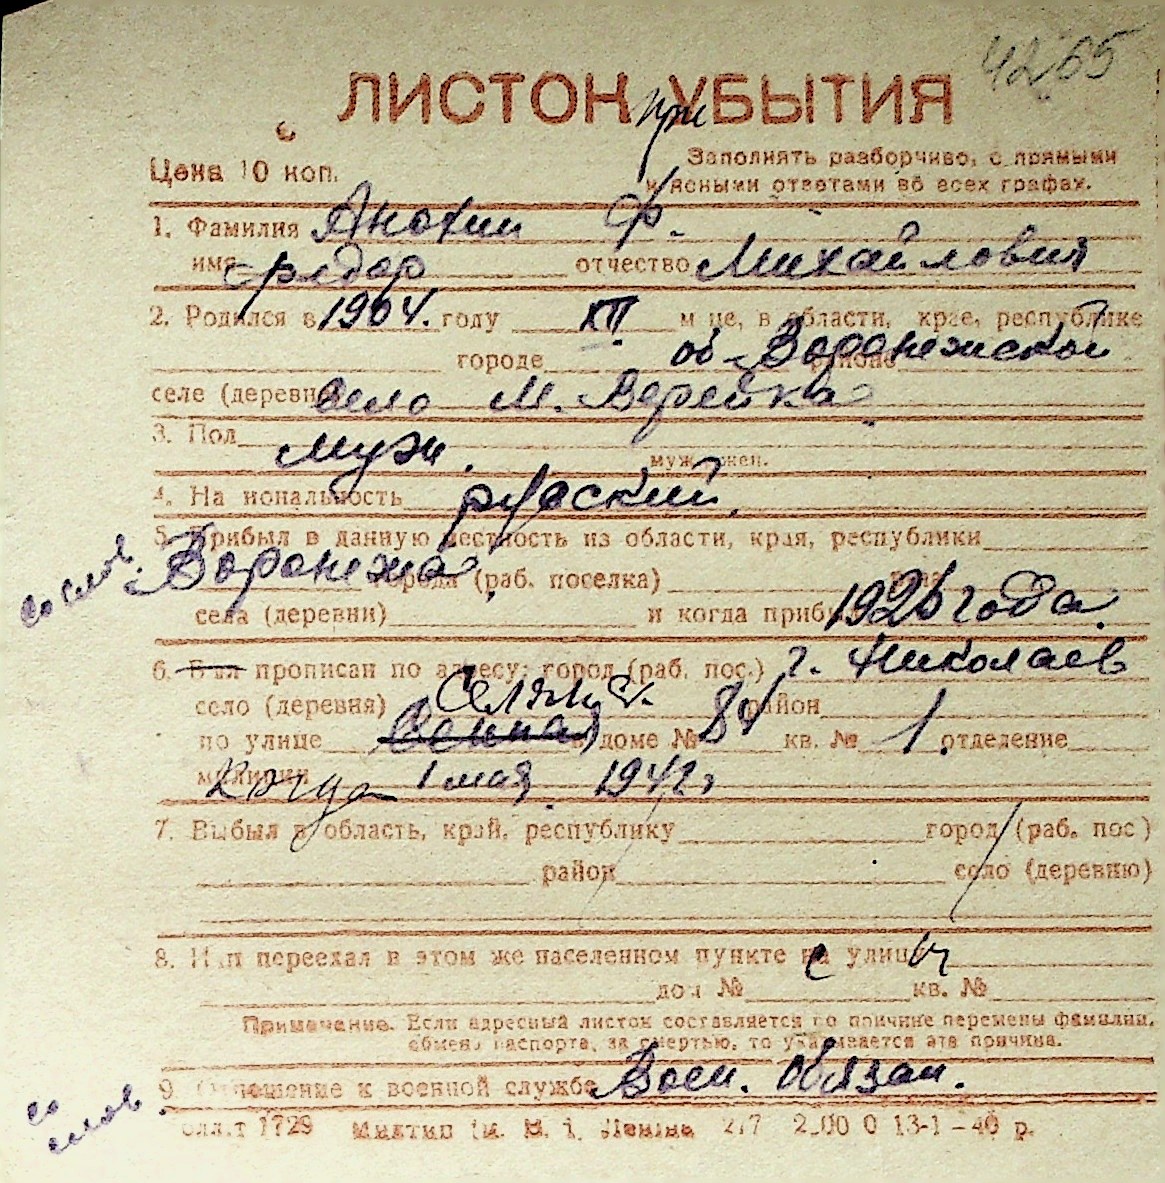 4265
ЛИСТОК УБЫТИЯ
при
Цена 10 коп.
Заполнять разборчиво, с прямыми
и ясными ответами во всех графах.
1. Фамилия Анохин Ф.
имя Фёдор отчество Михайлович
2. Родился в 1904. году XII м-це, в области, крае, республике
городе об-Воронежской районе
селе (деревне) село М. Верейка
3. Пол муж. муж. жен.
4. Национальность русский.
5. Прибыл в данную местность из области, края, республики
со слов. Воронежа города (раб. поселка)
села (деревни) и когда прибыл 1926 года.
6. Был прописан по адресу: город (раб. пос.) г. Николаев
село (деревня) район
по улице Сенная в доме № 84 кв. № 1. отделение
милиции Когда 1 мая. 1942 г
7. Выбыл в область, край, республику город (раб. пос.)
район село (деревню)
8. Или переехал в этом же населенном пункте на улицу
с
дом № кв. №
Примечание. Если адресный листок составляется по причине перемены фамилии,
обмена паспорта, за смертью, то указывается эта причина.
9. Отношение к военной службе Воен. обязан.
со слов
1729 им. В. И. Ленина 13-1-40 р.